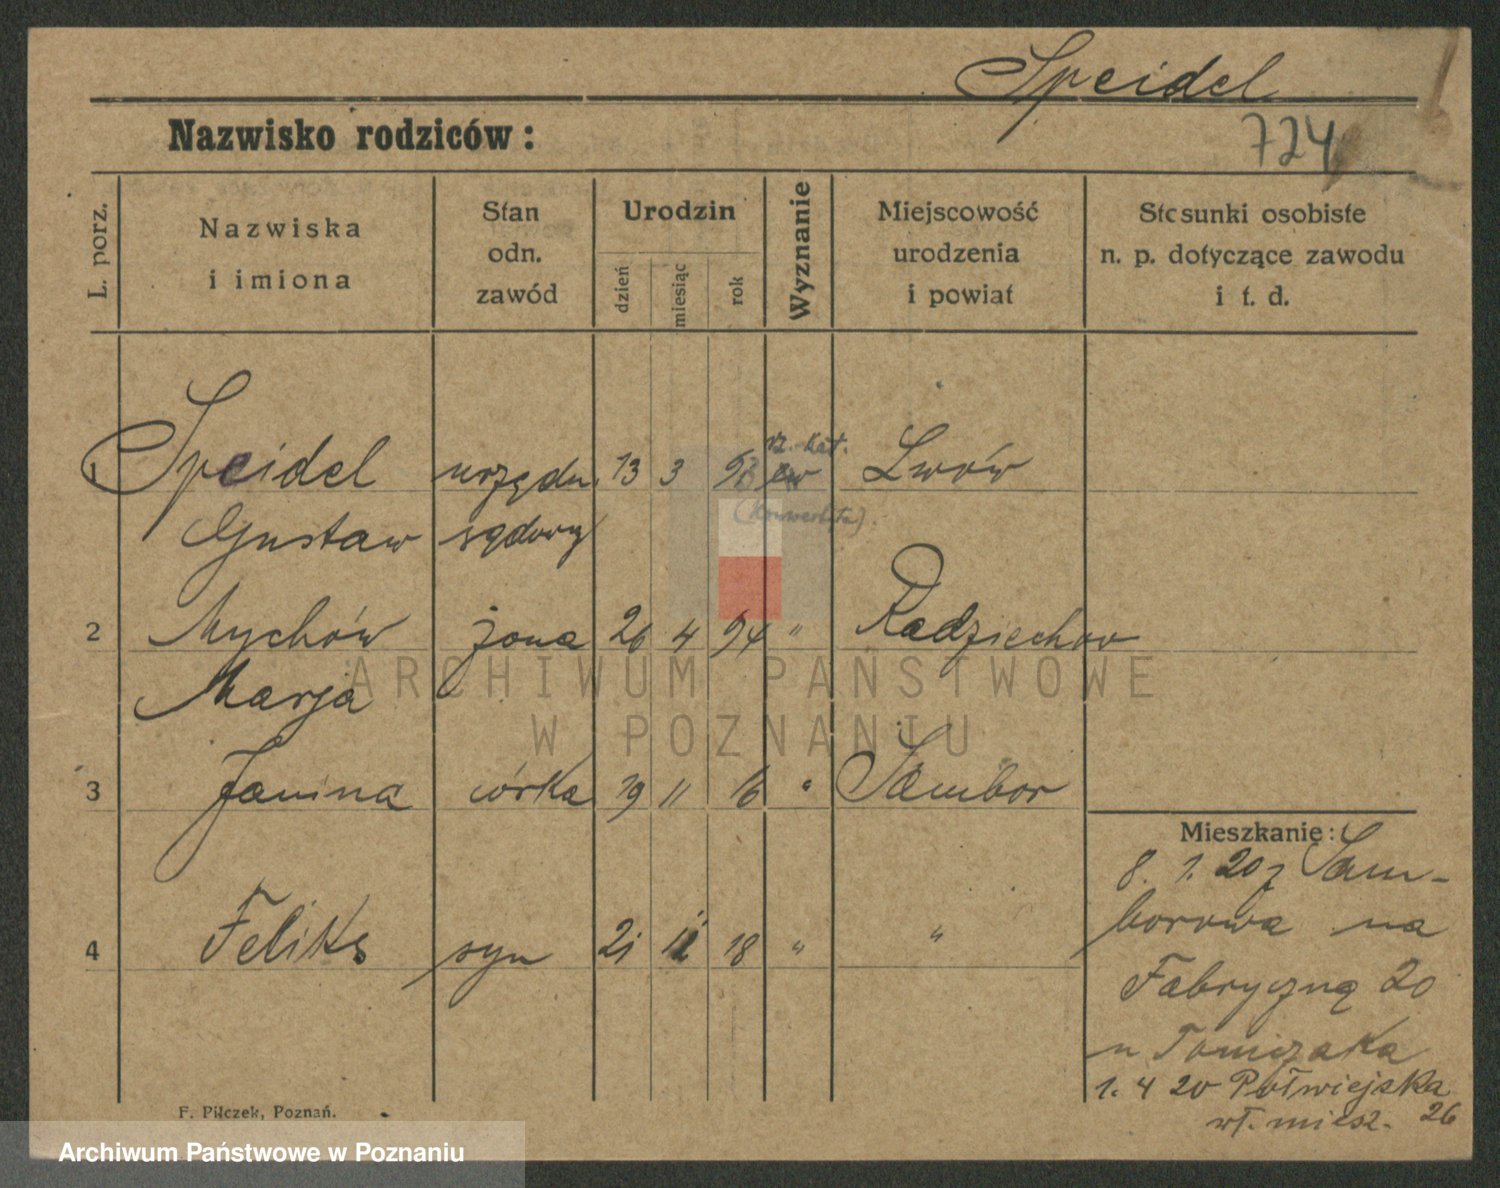 Speidel
724
Nazwisko rodziców:
L. porz.
Nazwiska
i imiona
Stan
odn.
zawód
Urodzin
dzień
miesiąc
rok
Wyznanie
Miejscowość
urodzenia
i powiat
Stosunki osobiste
n. p. dotyczące zawodu
i t. d.
rz. kat.
1 Speidel urzędn. 13 3 93 ew Lwów
(Konwertyta).
Gustaw sądowy
2 Mychów żona 26 4 94 " Radziechov
Marja
ARCHIWUM PAŃSTWOWE
W POZNANIU
3 Janina córka 19 11 16 " Sambor
Mieszkanie:
8. 1. 20 z Sam-
borowa na
4 Feliks syn 21 18 " "
Fabryczną 20
u Tomczaka
1. 4 20 Półwiejska
26
wł. miesz.
F. Pilczek, Poznań.
Archiwum Państwowe w Poznaniu